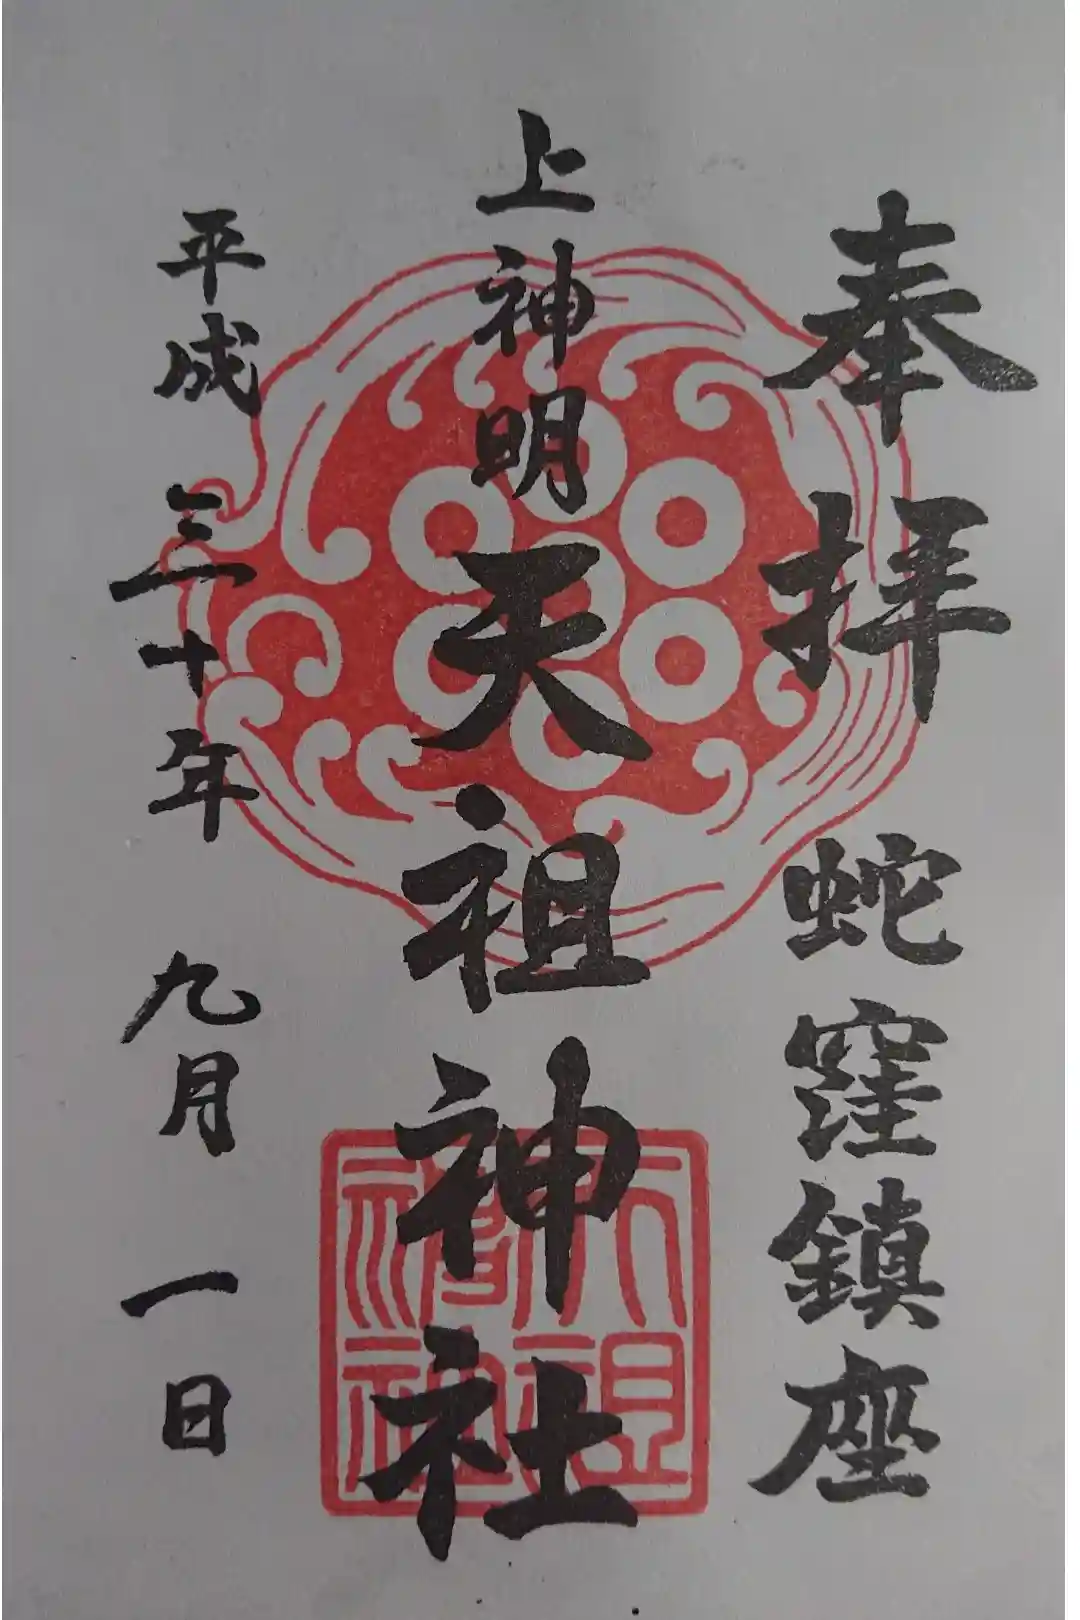 奉拝 蛇窪鎮座
上神明天祖神社
平成三十年九月一日
天祖神社